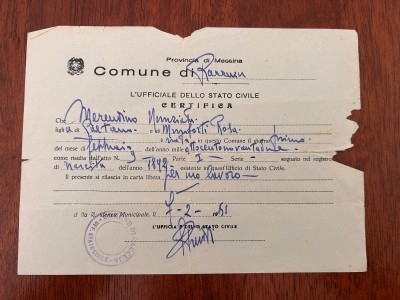 Provincia di Messina
Comune di Raccuja
L'UFFICIALE DELLO STATO CIVILE
CERTIFICA
Che Merendino Nunziata
figlia di Gaetano e di Monforti Rosa
nata in questo Comune il giorno primo
del mese di Gennaio dell'anno mille ottocentonovantadue
come risulta dall'atto N. 1 Parte I Serie - segnato nel registro
di nascita dell'anno 1892 esistente in quest'ufficio di Stato Civile.
Il presente si rilascia in carta libera per uso lavoro
dalla Residenza Municipale, 7-2-1951
L'UFFICIALE DELLO STATO CIVILE